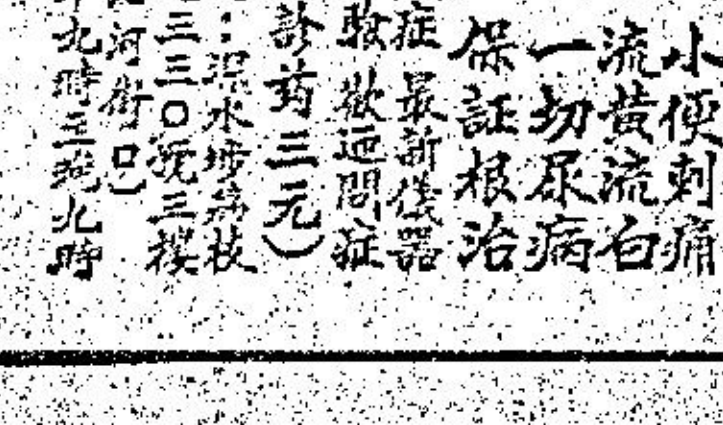 小便刺痛
流黃流白
一切尿病
保証根治
症 最新儀器
驗 歡迎問症
診葯三元）
：深水埗荔枝
三三〇號三樓
河街口）
九時至晚九時